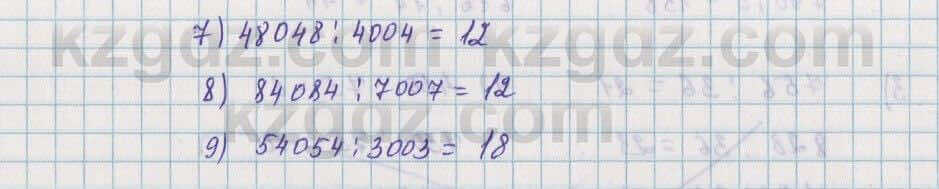 7) 48048 : 4004 = 12
kzgdz.com
8) 84084 : 7007 = 12
kzgdz.com
9) 54054 : 3003 = 18